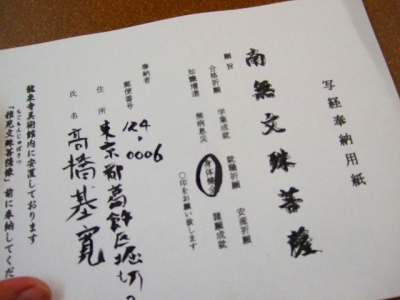 写経奉納用紙
南無文殊菩薩
願旨
合格祈願 学業成就 就職祈願 安産祈願
知識増進 無病息災 身体健全 諸願成就
〇印をお願い致します
奉納者
郵便番号 124-0006
住所 東京都葛飾区堀切
氏名 高橋基寛
龍泉寺美術館内に安置しております
ちごもんじゅぼさつ
「稚児文殊菩薩像」前に奉納してくだ